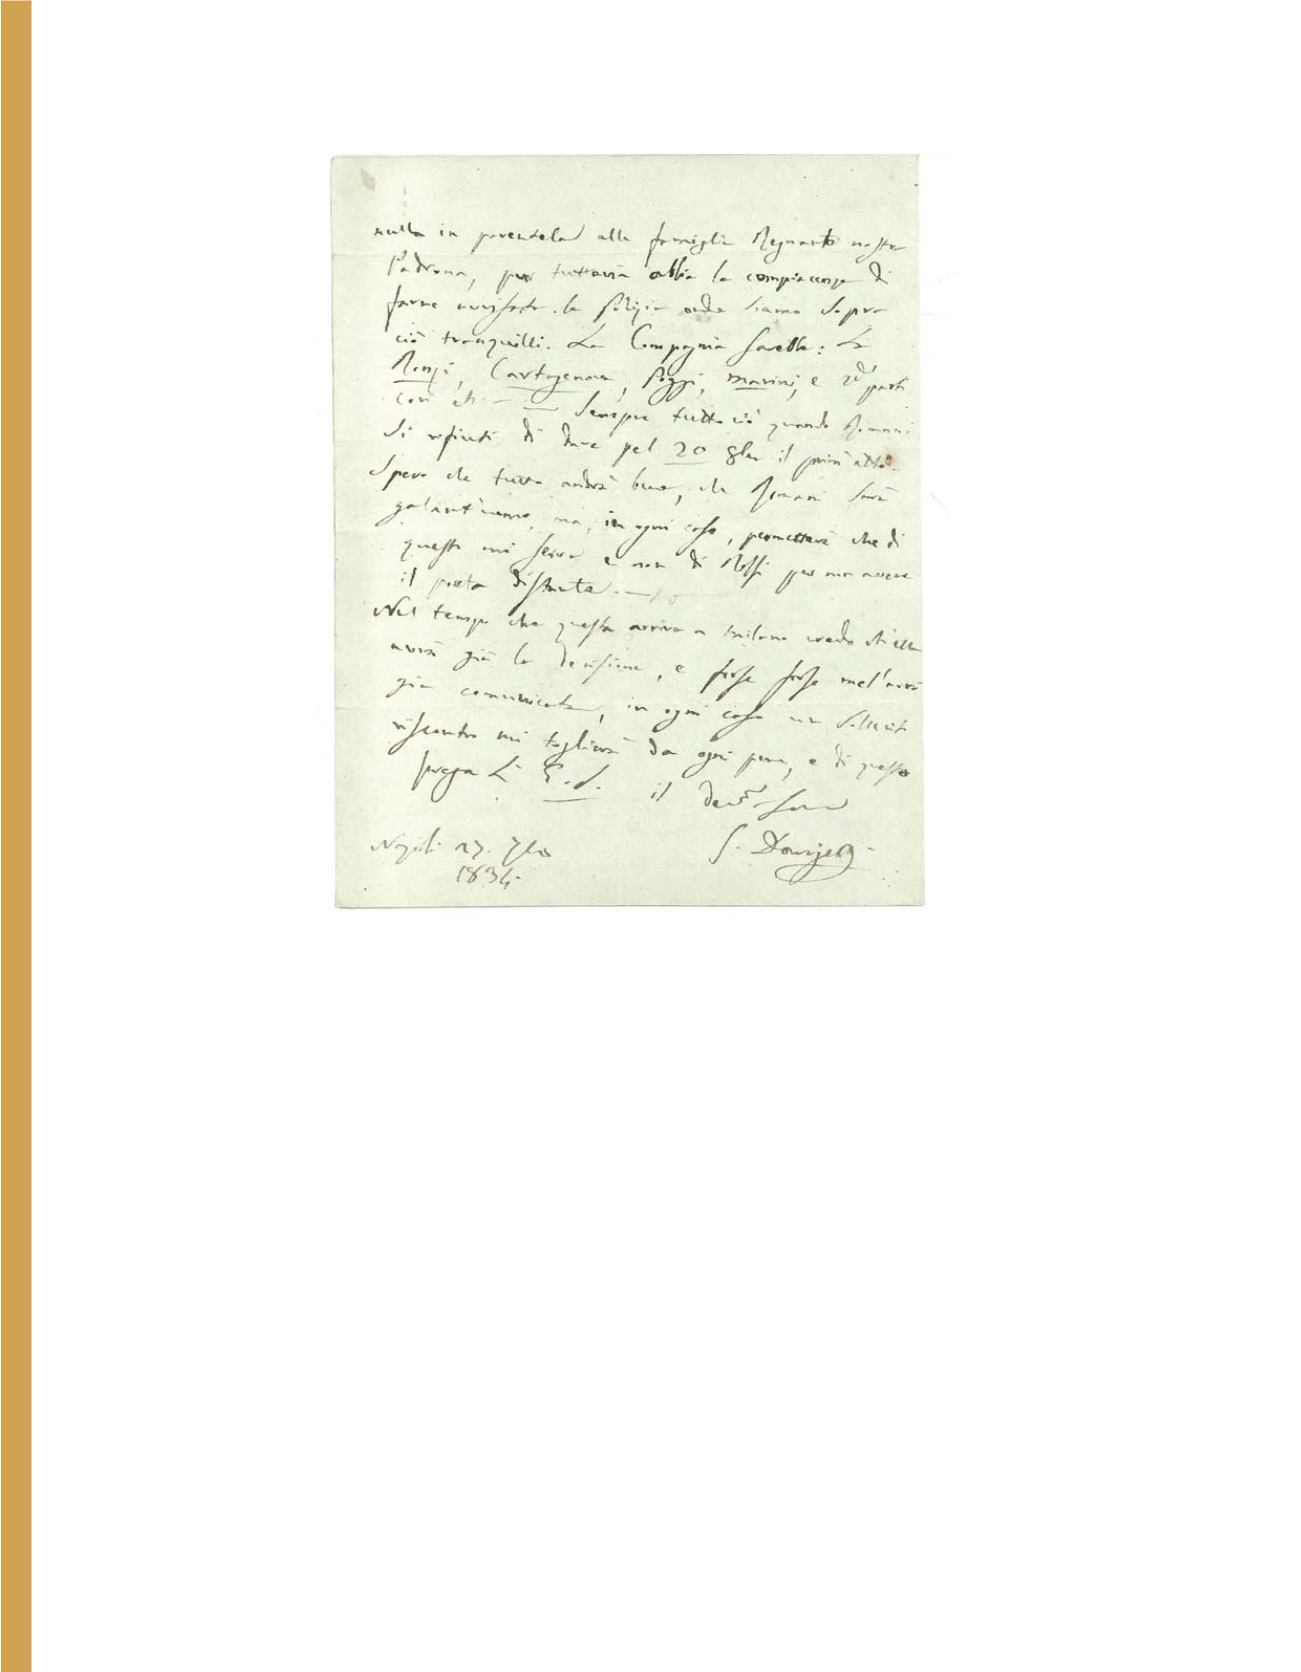 nulla in parentela alla famiglia Regnante nostra
Padrona, pur tuttavia abbia la compiacenza di
farne avvisata la Polizia onde siamo sopra
ciò tranquilli. La Compagnia sarebbe: La
Ronzi, Cartagenova, Poggi, Marini, e 2de parti
con eti — Sempre tutto ciò quando Romani
si rifiuti di dare pel 20 8bre il prim'atto.
Spero che tutto andrà bene, che Romani sarà
galant'uomo, ma, in ogni caso, permetterà che di
questi mi serva e non di Rossi per non avere
il poeta distante. —
Nel tempo che questa arriva a Milano credo ch'ella
avrà già la decisione, e forse forse mel'avrà
già comunicata, in ogni caso un sollecito
riscontro mi toglierà da ogni pena, e di questo
prega L' E. S. il devmo Servo
Napoli 27. 7bre G. Donizetti
1834